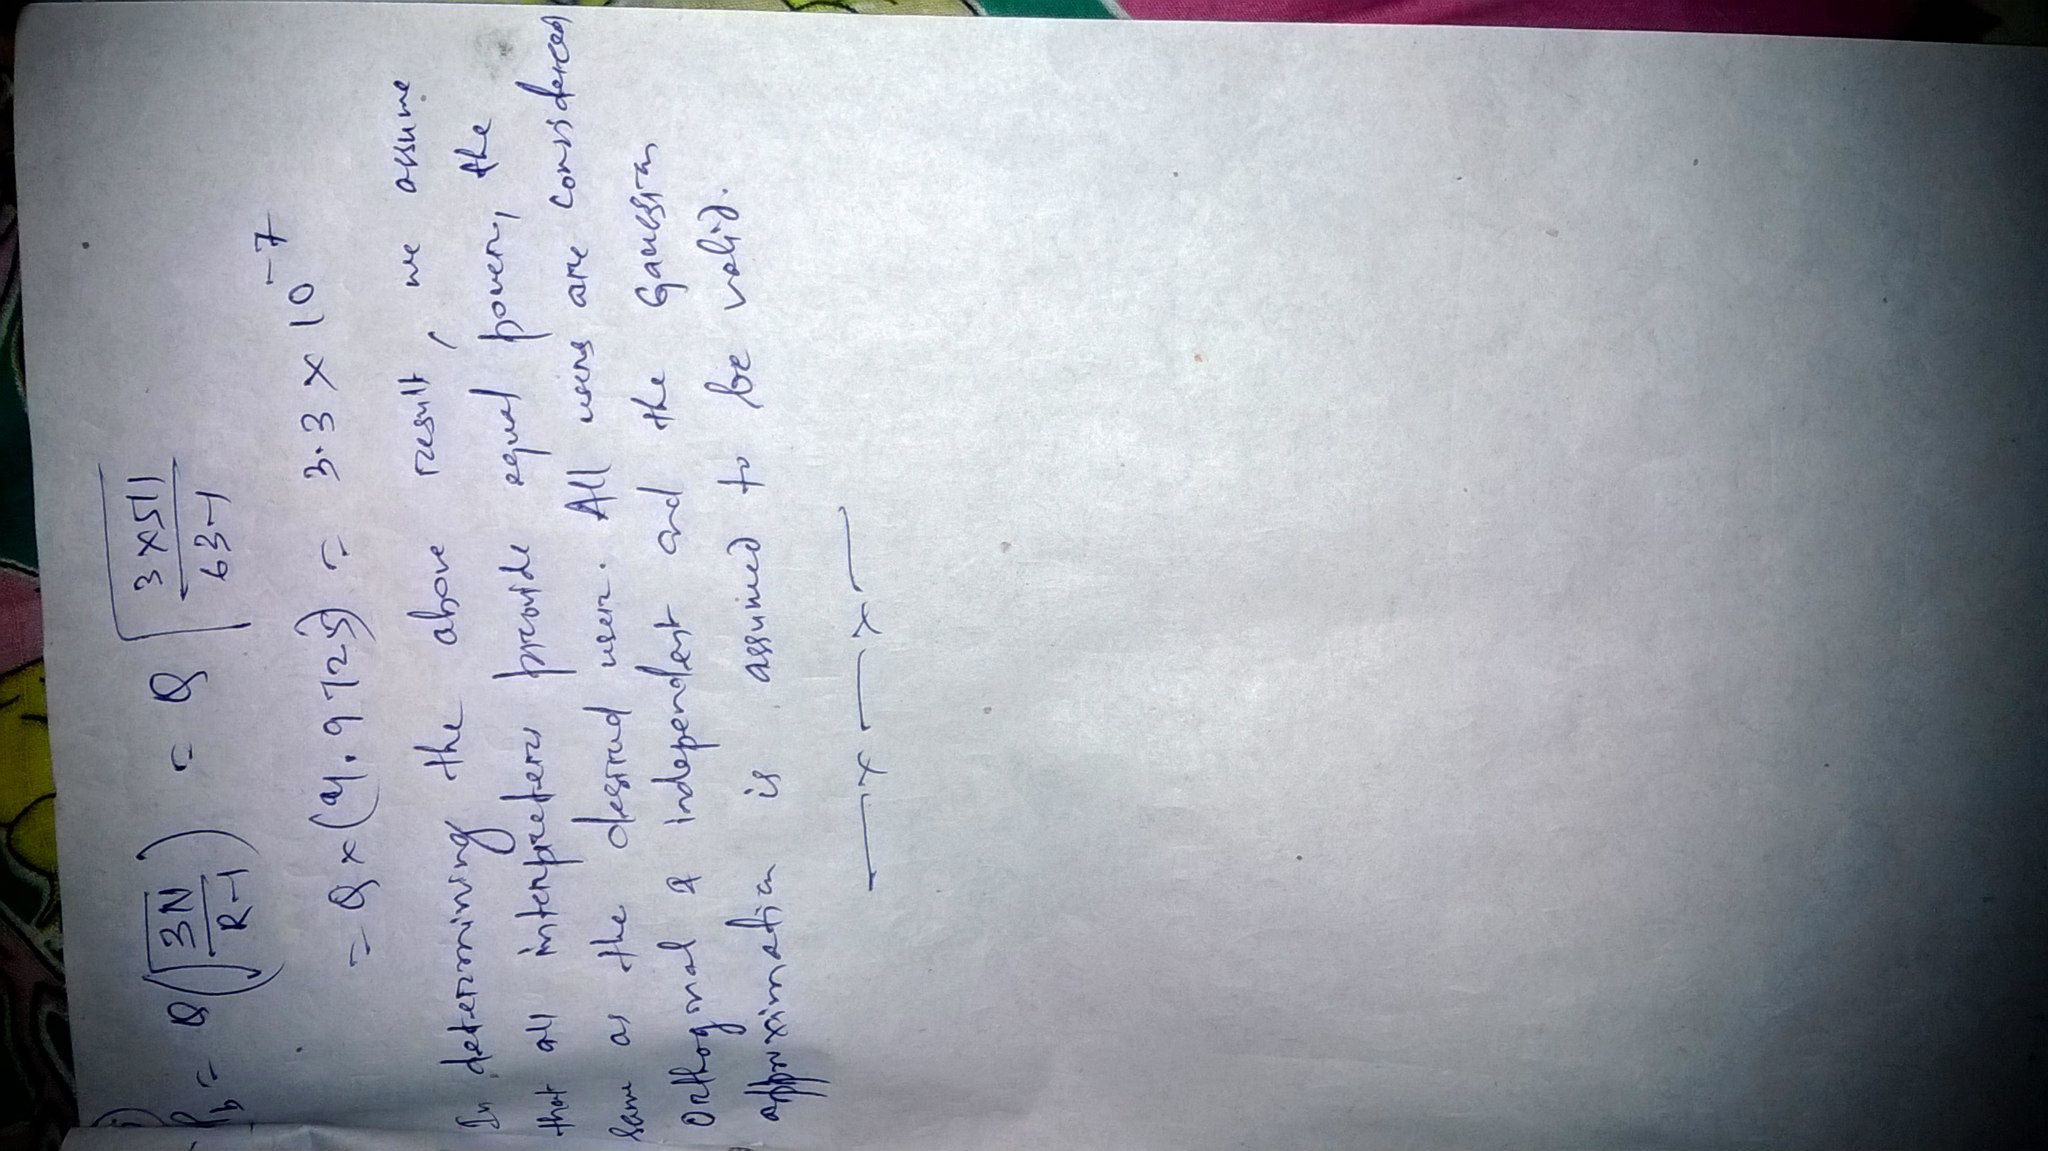 P_b = Q(√(3N/K-1)) = Q √(3×511/63-1)
= Q×(4.9725) = 3.3 × 10^-7
In determining the above result, we assume
that all interpreters provide equal power, the
same as the desired user. All users are considered
orthogonal & independent and the Gaussian
approximation is assumed to be valid.
—x—x—